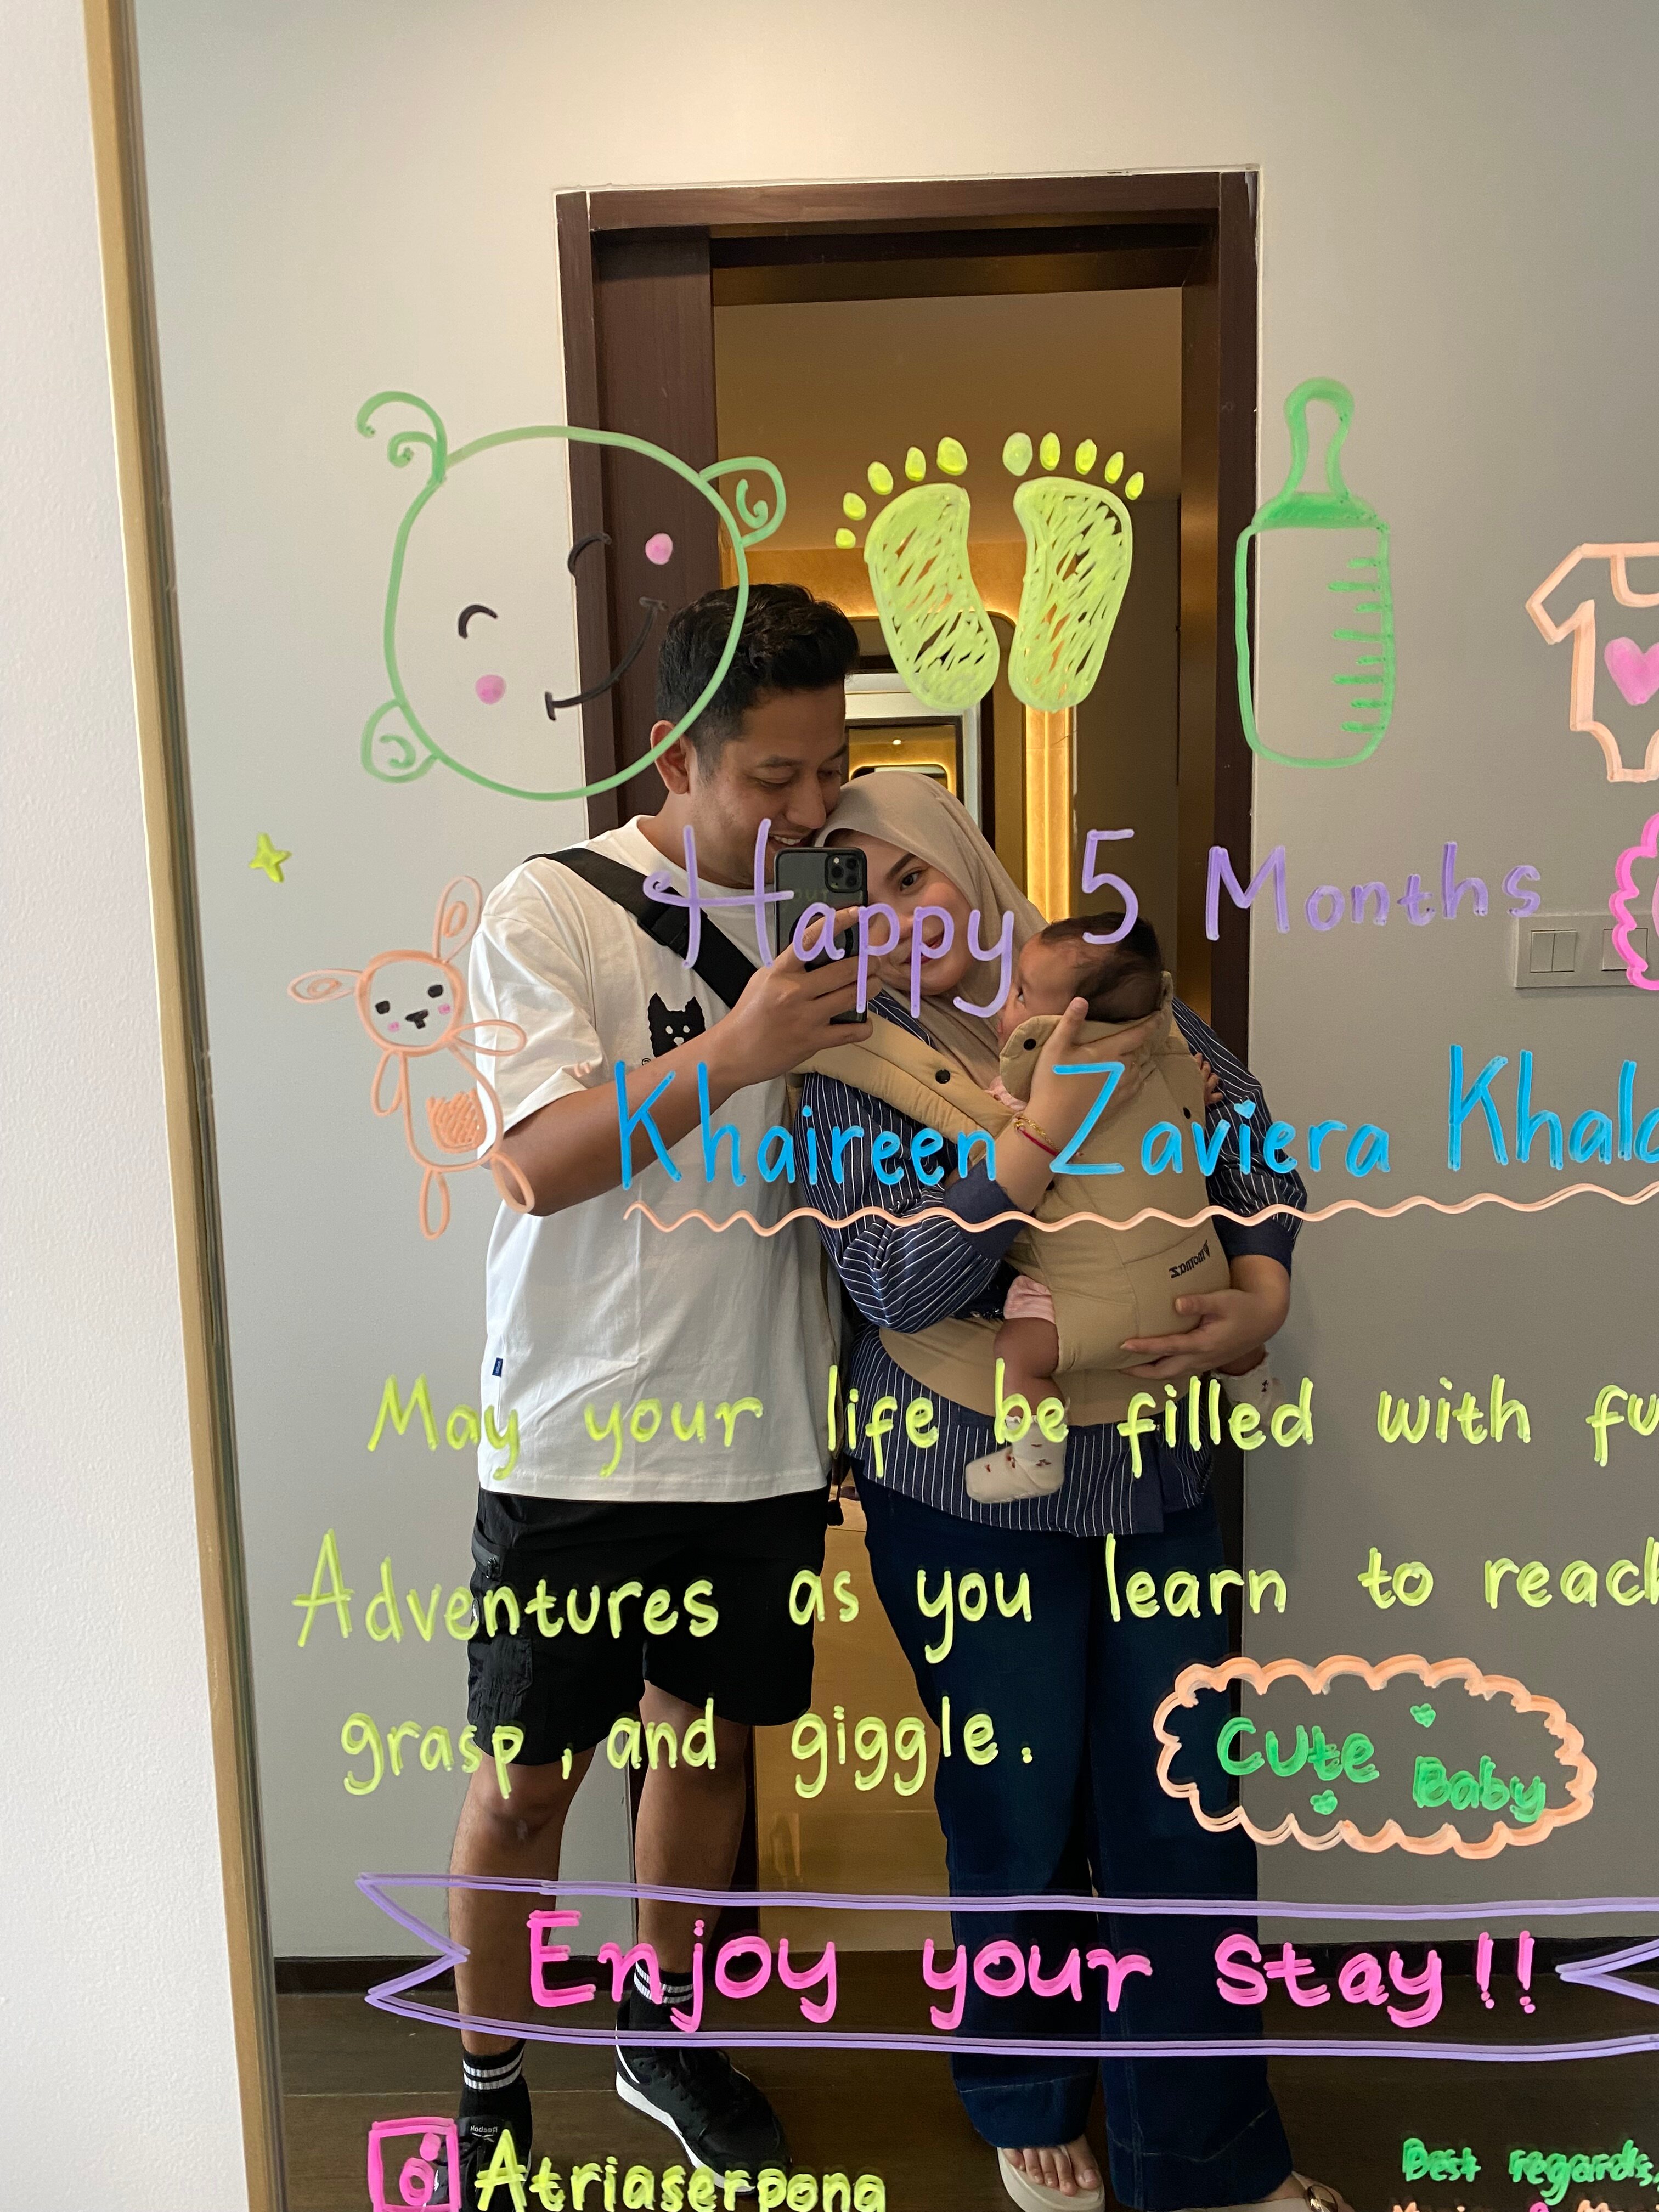 Happy 5 Months
Khaireen Zaviera Khal
May your life be filled with fu
Adventures as you learn to reach
grasp, and giggle.
Cute Baby
Enjoy your Stay!!
Atriaserpong
Best regards,